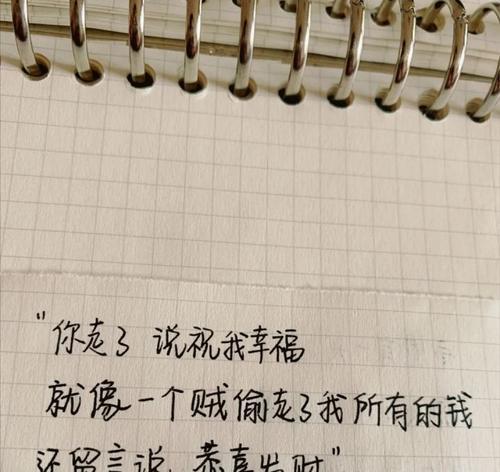 "你走了 说祝我幸福
就像一个贼偷走了我所有的钱
还留言说 恭喜发财"